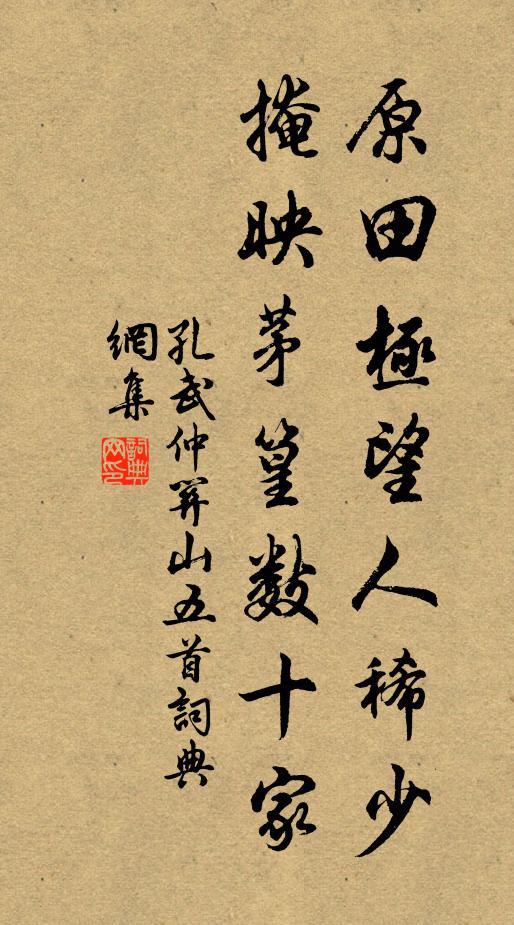 原田極望人稀少
掩映茅篁數十家
孔武仲羿山五首詞典
網集
詞典
网印